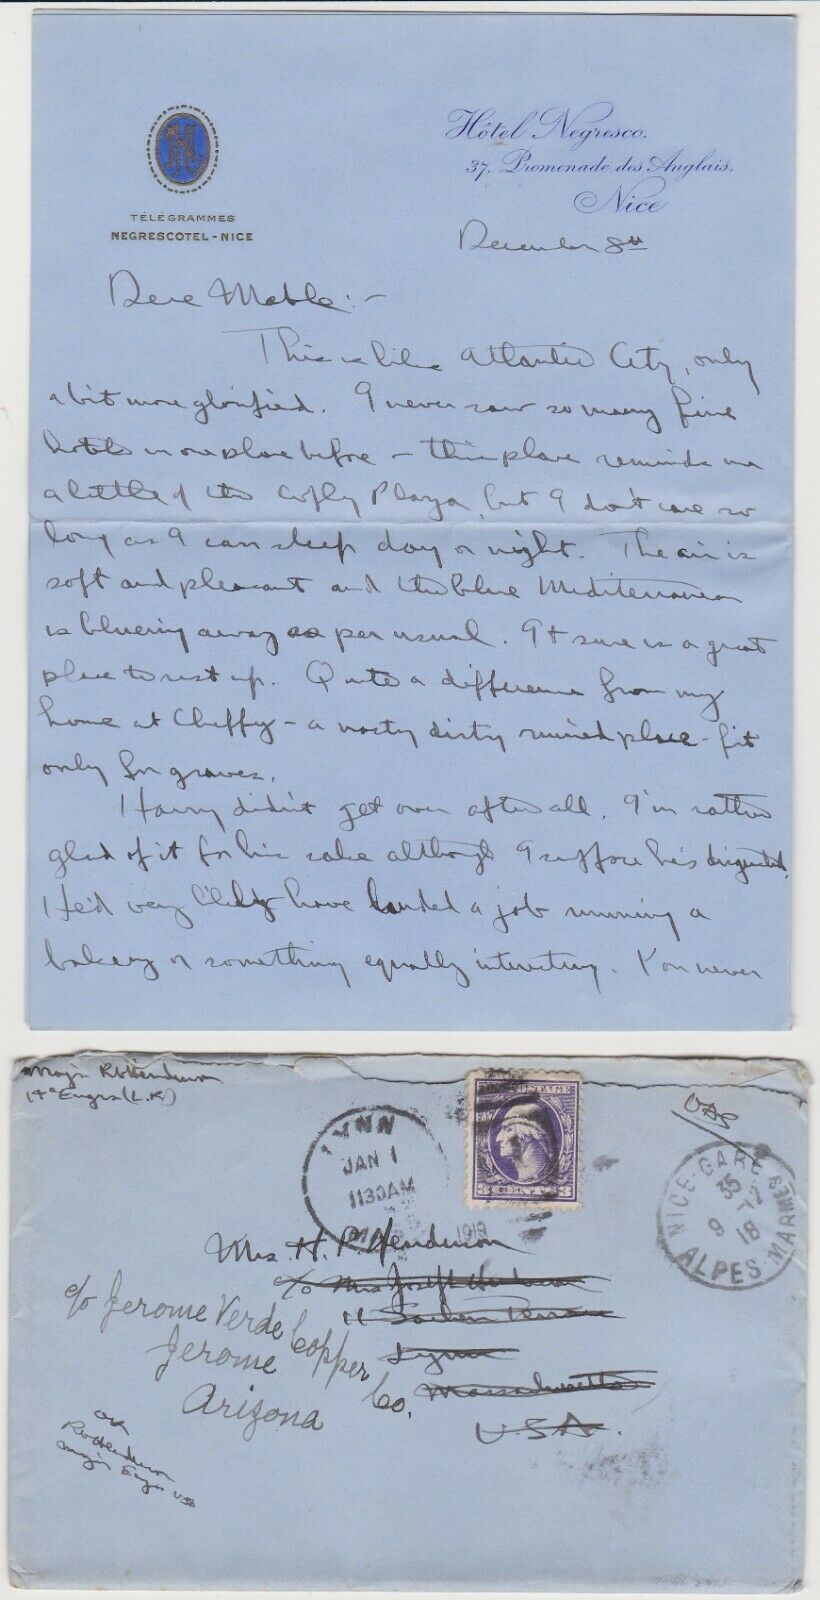 TÉLÉGRAMMES
NEGRESCOTEL - NICE
Hôtel Negresco.
37, Promenade des Anglais,
Nice
December 8th
Dear Mable:-
This is like Atlantic City, only
a bit more glorified. I never saw so many fine
hotels in one place before - this place reminds me
a little of the Copley Plaza, but I don't care so
long as I can sleep day or night. The air is
soft and pleasant and the blue Mediterranean
is blueing away as per usual. It sure is a great
place to rest up. Quite a difference from my
home at Cheppy - a nasty dirty ruined place - fit
only for graves.
Harry didn't get over after all. I'm rather
glad of it for his sake although I suppose he's disgusted.
He'd very likely have landed a job running a
bakery or something equally interesting. You never
Major
Engrs
OAS
LYNN
JAN 1
1130AM
1919
POSTAGE
3 CENTS 3
NICE-GARE
35
9 12
18
ALPES MARITIMES
Mrs H. P. Henderson
c/o Mrs Joseph Henderson
11
Lynn
Massachusetts
U.S.A.
c/o Jerome Verde Copper Co.
Jerome
Arizona
Major Engrs USA